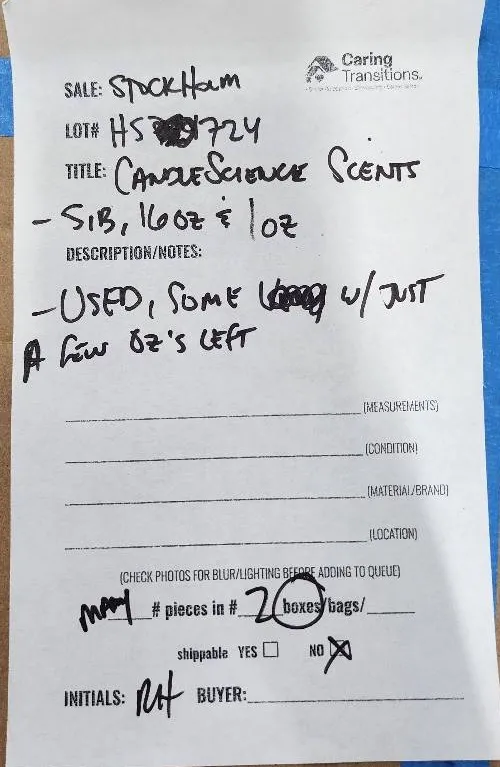 Caring
Transitions.
SALE: STOCKHOLM
LOT# HS 1724
TITLE: CANDLESCIENCE SCENTS
- 5LB, 16 OZ & 1 OZ
DESCRIPTION/NOTES:
- USED, SOME W/ JUST
A FEW OZ'S LEFT
(MEASUREMENTS)
(CONDITION)
(MATERIAL/BRAND)
(LOCATION)
(CHECK PHOTOS FOR BLUR/LIGHTING BEFORE ADDING TO QUEUE)
MANY # pieces in # 2 boxes/bags/
shippable YES NO
INITIALS: RH BUYER: